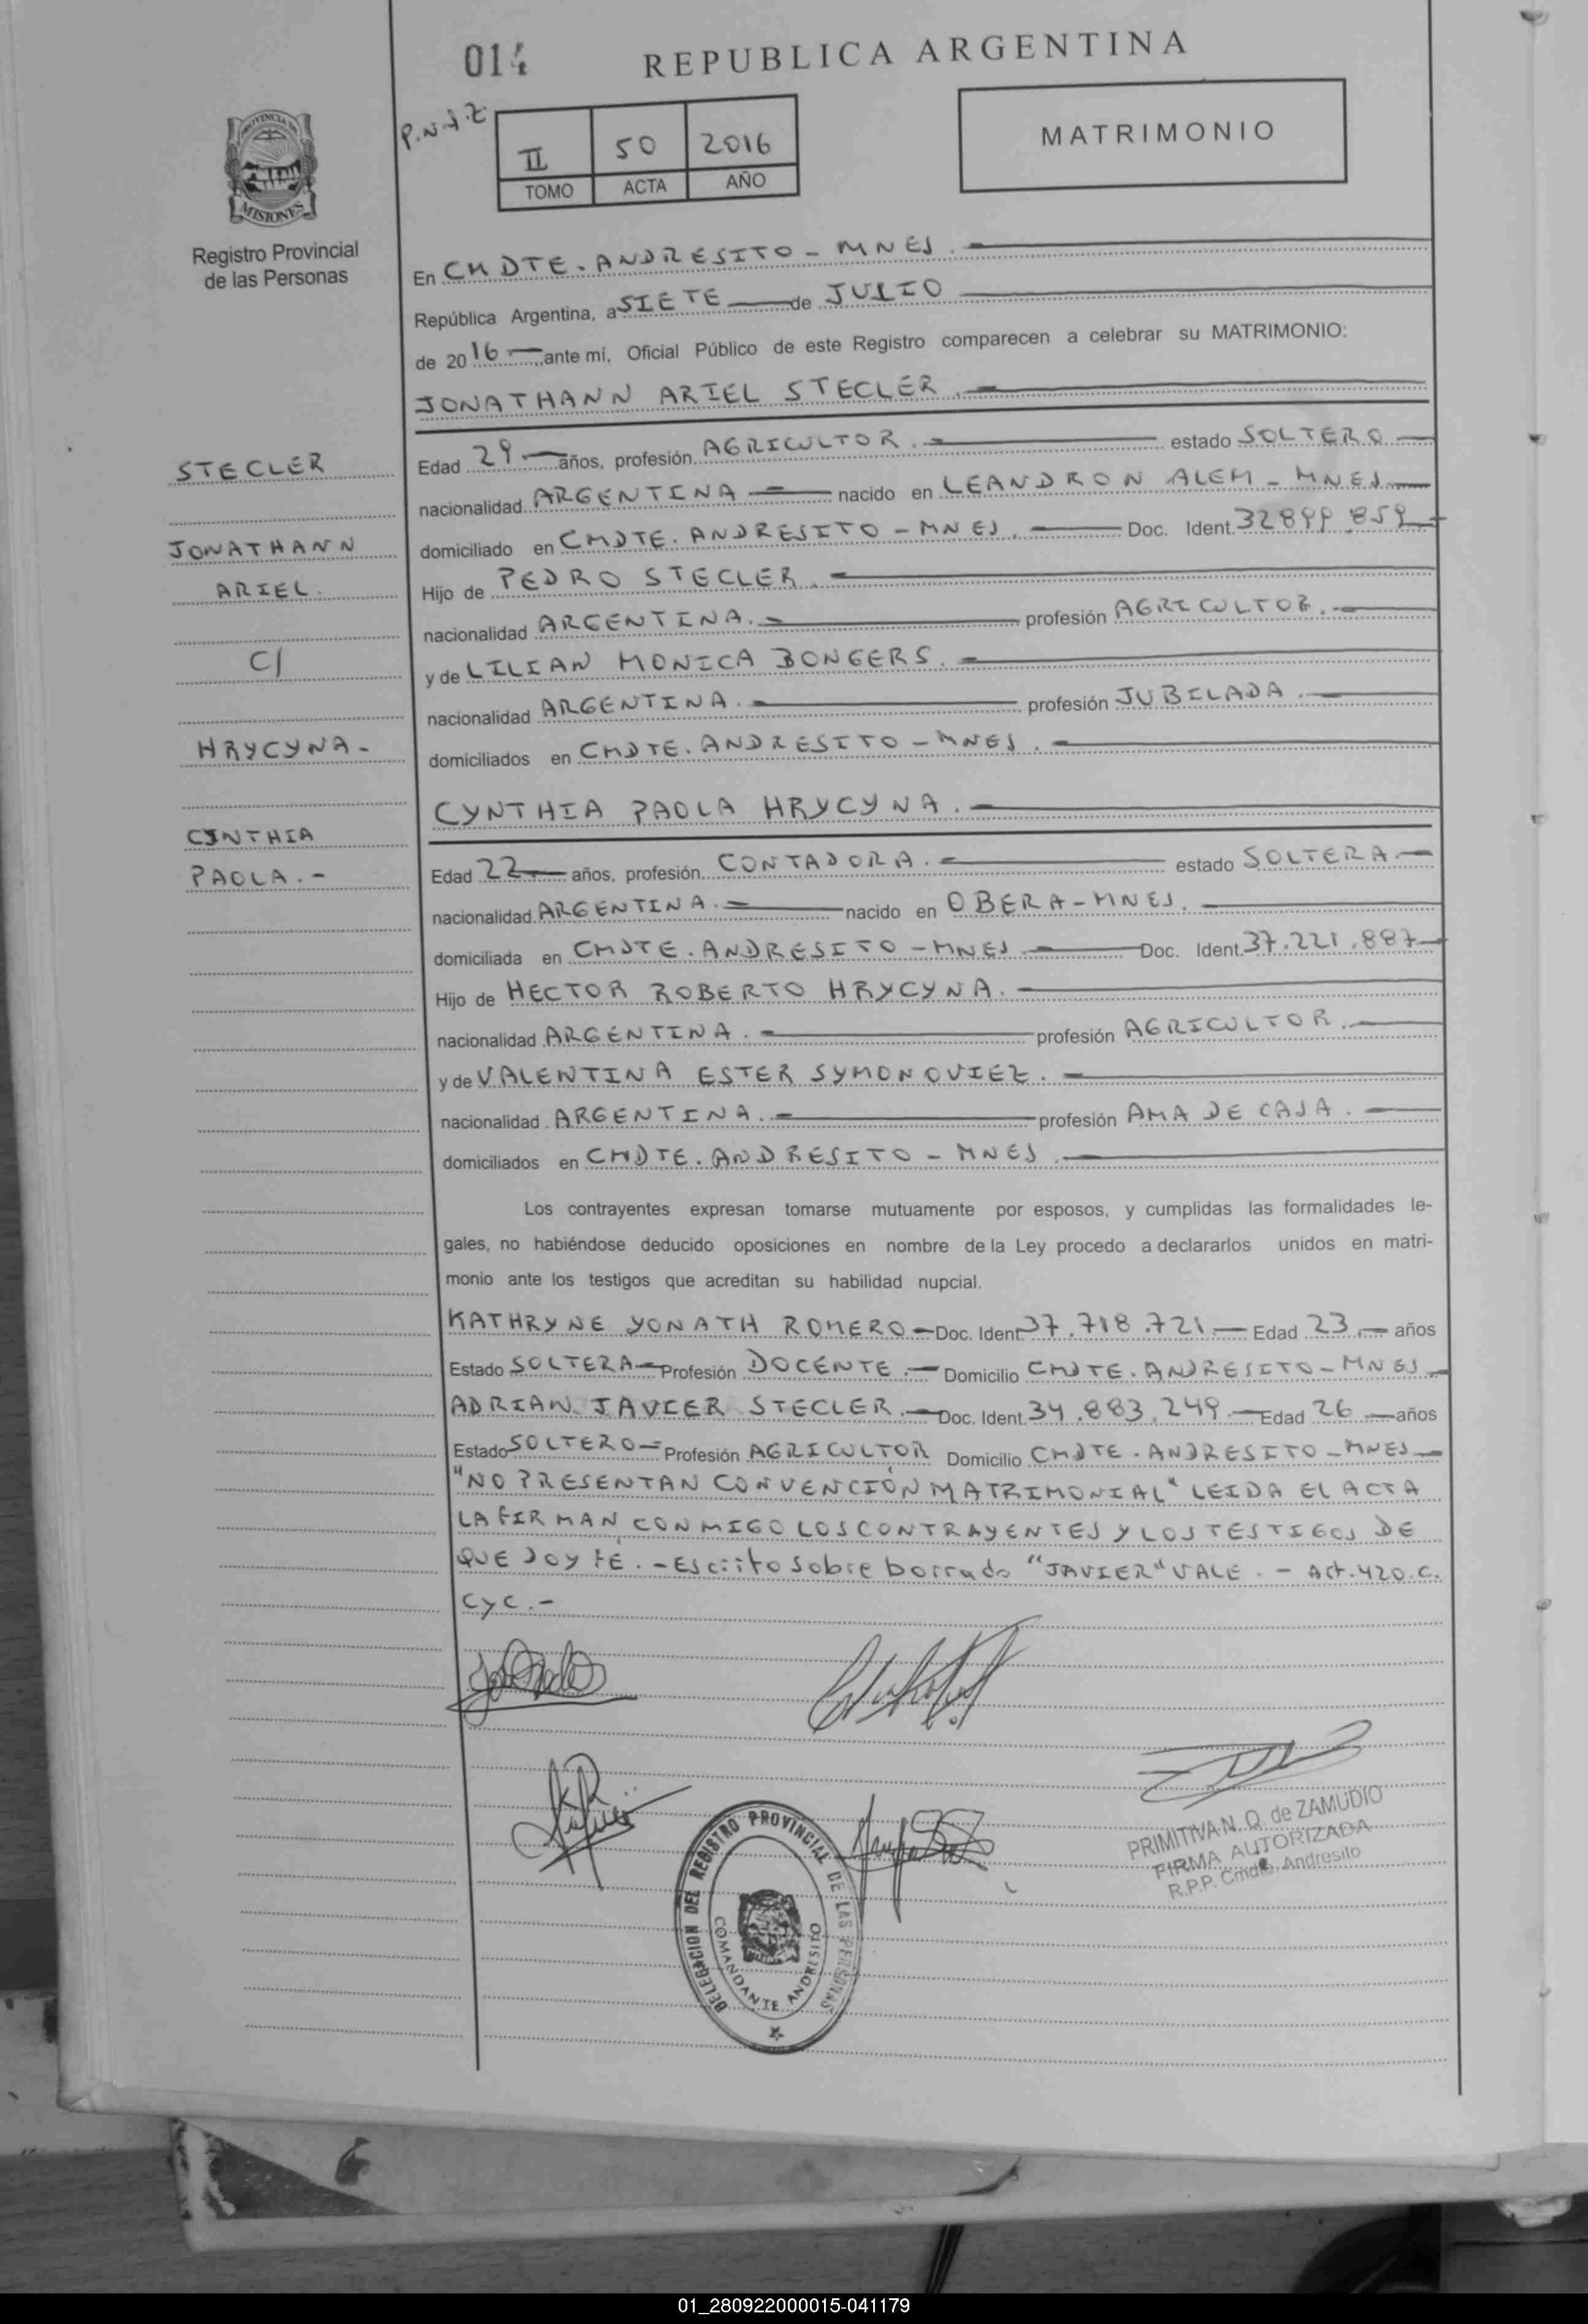 014 REPUBLICA ARGENTINA
P.N.A.Z.
II 50 2016
TOMO ACTA AÑO
MATRIMONIO
PROVINCIA DE
MISIONES
Registro Provincial
de las Personas
En CMDTE. ANDRESITO - MNES.
República Argentina, a SIETE de JULIO
de 2016 ante mi, Oficial Público de este Registro comparecen a celebrar su MATRIMONIO:
JONATHANN ARIEL STECLER.
STECLER
JONATHANN
ARIEL.
C/
HRYCYNA-
CYNTHIA
PAOLA.-
Edad 29 años, profesión AGRICULTOR. estado SOLTERO
nacionalidad ARGENTINA nacido en LEANDRO N ALEM - MNES
domiciliado en CMDTE. ANDRESITO - MNES. Doc. Ident. 32899.859
Hijo de PEDRO STECLER.
nacionalidad ARGENTINA. profesión AGRICULTOR.
y de LILIAN MONICA BONGERS.
nacionalidad ARGENTINA. profesión JUBILADA.
domiciliados en CMDTE. ANDRESITO - MNES.
CYNTHIA PAOLA HRYCYNA.
Edad 22 años, profesión CONTADORA. estado SOLTERA
nacionalidad ARGENTINA. nacido en OBERA - MNES.
domiciliada en CMDTE. ANDRESITO - MNES. Doc. Ident. 37.221.887
Hijo de HECTOR ROBERTO HRYCYNA.
nacionalidad ARGENTINA. profesión AGRICULTOR.
y de VALENTINA ESTER SYMONOVIEZ.
nacionalidad ARGENTINA. profesión AMA DE CASA.
domiciliados en CMDTE. ANDRESITO - MNES.
Los contrayentes expresan tomarse mutuamente por esposos, y cumplidas las formalidades le-
gales, no habiéndose deducido oposiciones en nombre de la Ley procedo a declararlos unidos en matri-
monio ante los testigos que acreditan su habilidad nupcial.
KATHRYNE YONATH ROMERO Doc. Ident 37.718.721. Edad 23. años
Estado SOLTERA Profesión DOCENTE. Domicilio CMDTE. ANDRESITO - MNES
ADRIAN JAVIER STECLER. Doc. Ident. 34.883.249. Edad 26 años
Estado SOLTERO Profesión AGRICULTOR Domicilio CMDTE. ANDRESITO - MNES
"NO PRESENTAN CONVENCIÓN MATRIMONIAL" LEIDA EL ACTA
LA FIRMAN CONMIGO LOS CONTRAYENTES Y LOS TESTIGOS DE
QUE DOY FÉ. - Escrito sobre borrado "JAVIER" VALE. - Art. 420. C.
CyC.-
DELEGACION DEL REGISTRO PROVINCIAL DE LAS PERSONAS
COMANDANTE ANDRESITO
PRIMITIVA N. Q. de ZAMUDIO
FIRMA AUTORIZADA
R.P.P. Cmdte. Andresito
01_280922000015-041179